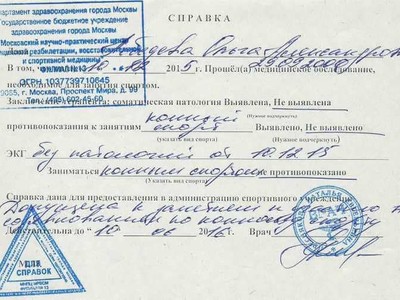 Департамент здравоохранения города Москвы
Государственное бюджетное учреждение
здравоохранения города Москвы
Московский научно-практический центр
медицинской реабилитации, восстановительной
и спортивной медицины
ФИЛИАЛ
ОГРН 1037739710645
г. Москва, Проспект Мира, д. 99
СПРАВКА
Ольга Александровна
В том, что 2015 г. Прошёл(а) медицинское обследование,
необходимое для занятия спортом.
Заключение терапевта: соматическая патология Выявлена, Не выявлена
(Нужное подчеркнуть)
противопоказания к занятиям конный спорт Выявлено, Не выявлено
(указать вид спорта) (Нужное подчеркнуть)
ЭКГ без патологии от 10.12.15
Заниматься конным спортом противопоказано
(Указать вид спорта)
Справка дана для предоставления в административно спортивного
Допущена к занятиям и участию в
соревнованиях по конному спорту
Действительна до "10" 06 2016 г. Врач
ДЛЯ
СПРАВОК